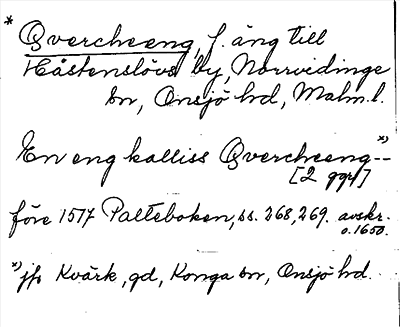 * Qvercheeng, f. äng till
Håstenslövs by, Norrvidinge
sn, Onsjö hd, Malm. l.
En eng kalliss Qvercheeng *) --
[2 ggr]
före 1517 Palteboken, ss. 268, 269. avskr.
o. 1650.
*) jfr Kvärk, gd, Konga sn, Onsjö hd.